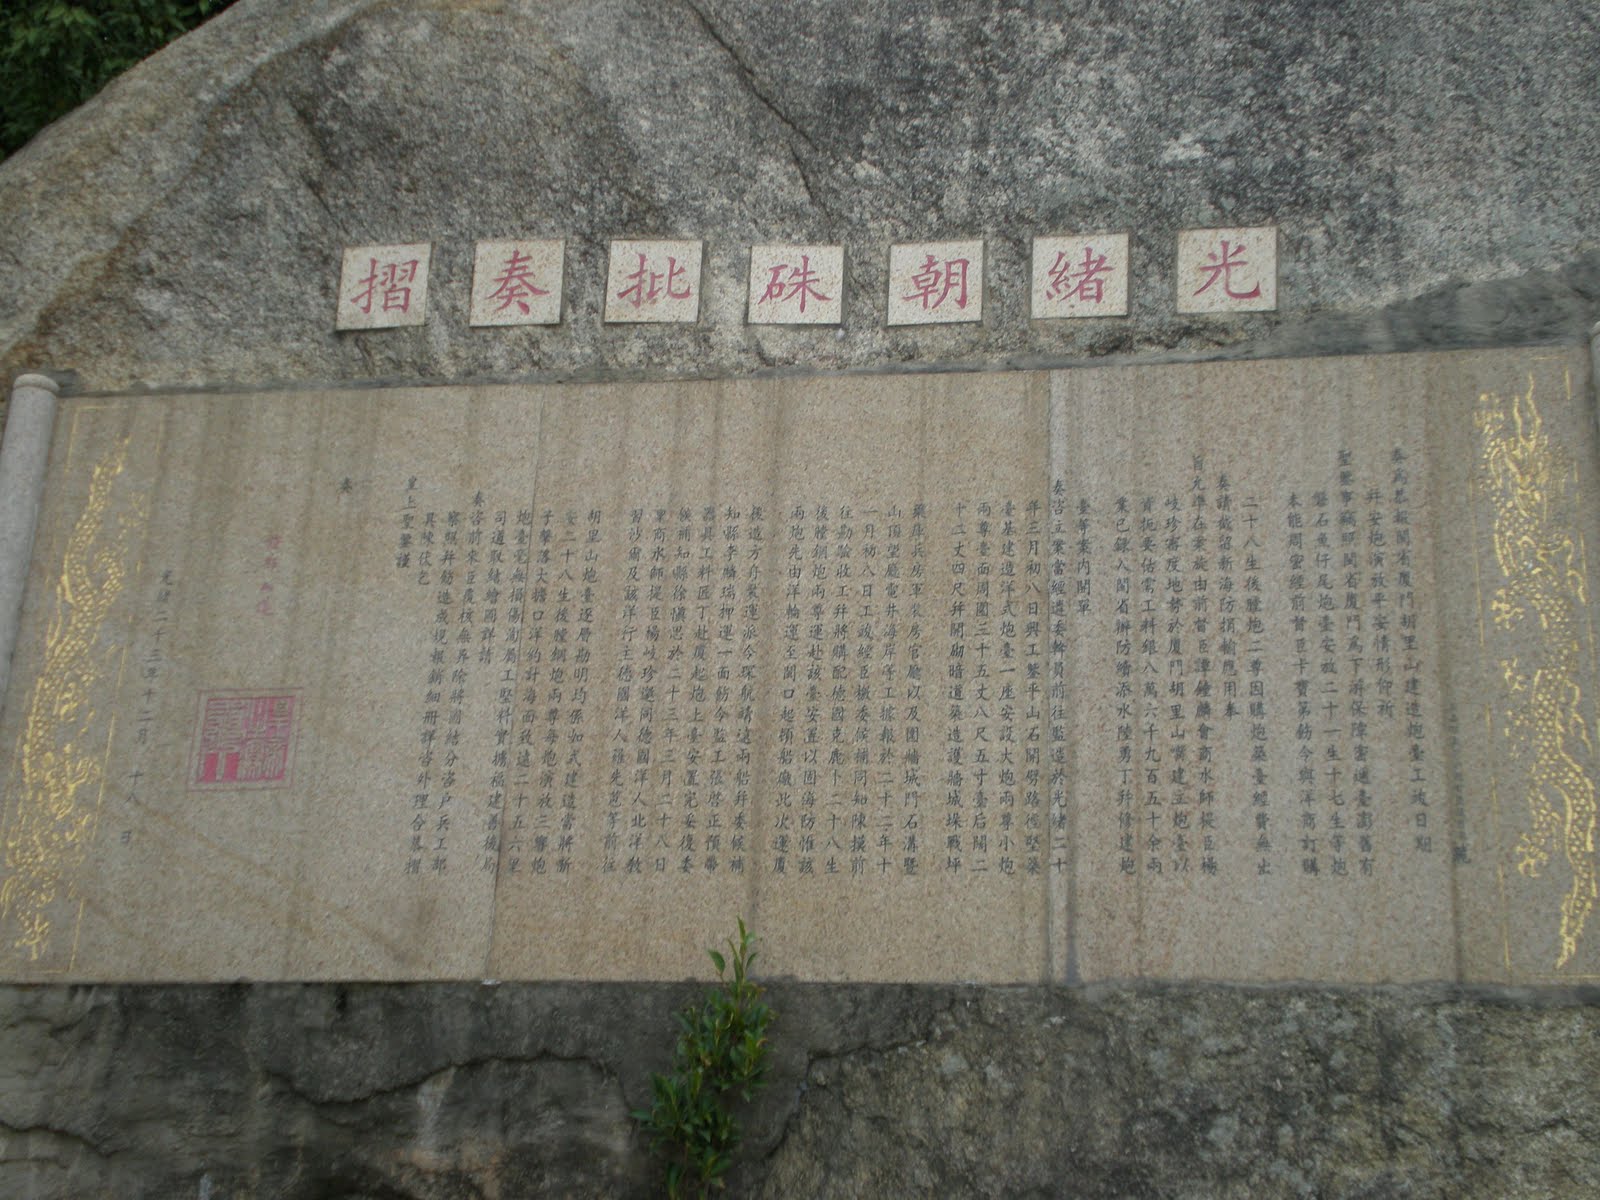 光緒朝硃批奏摺
奏為恭報閩省廈門胡里山建造炮臺工竣日期
并安炮演放平安情形仰祈
聖鑒事竊照閩省廈門為下游保障密邇臺澎舊有
磐石魚仔尾炮臺安設二十一生十七生等炮
未能周密經前督臣卞寶第飭令與洋商訂購
二十八生後膛炮二尊因購炮築臺經費無出
奏請截留新海防捐輸應用奉
旨允准在案旋由前督臣譚鍾麟會商水師提臣楊
岐珍審度地勢於廈門胡里山嘴建立炮臺以
資扼要估需工料銀八萬六千九百五十余兩
業已錄入閩省辦防續添水陸勇丁并修建炮
臺等案內開單
奏咨立案當經遴委幹員前往監造於光緒二十
年三月初八日興工鑿平山石開劈路徑堅築
臺基建造洋式炮臺一座安設大炮兩尊小炮
兩尊臺面周圍三十五丈八尺五寸臺后闊二
十二丈四尺并開砌暗道築造護牆城垛戰坪
藥庫兵房軍裝房官廳以及圍牆城門石溝暨
山頂望廳電井海岸等工據報於二十二年十
一月初八日工竣經臣檄委候補同知陳模前
往勘驗收工并將購配德國克鹿卜二十八生
後膛鋼炮兩尊運赴該臺安置以固海防惟該
兩炮先由洋輪運至閩口起頓船廠此次運廈
後造方舟裝運派令琛航靖遠兩船并委候補
知縣李麟瑞押運一面飭令監工張啓正預帶
器具工料匠丁赴廈起炮上臺安置完妥後委
候補知縣徐慎思於二十三年三月二十八日
會商水師提臣楊岐珍率同德國洋人北洋教
習沙爾及該洋行主德國洋人羅先茞等前往
胡里山炮臺逐層勘明均係如式建造當將新
安二十八生後膛鋼炮兩尊每炮演放三響炮
子聲落大擔口洋約計海面致遠二十五六里
炮臺毫無損傷洵屬工堅料實據福建善後局
司道取結繪圖詳請
奏咨前來臣覆核無異除將圖結分咨戶兵工部
察照并飭造成規報銷細冊詳咨外理合恭摺
具陳伏乞
皇上聖鑒謹
奏
光緒二十三年十二月 十八 日